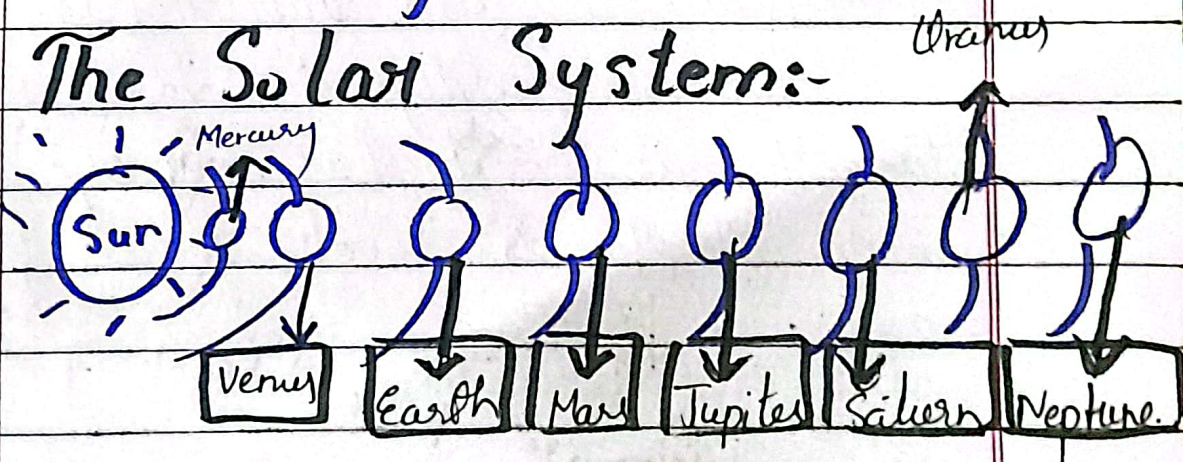 Uranus
The Solar System:-
Mercury
Sun
Venus
Earth Mars Jupiter Saturn Neptune.